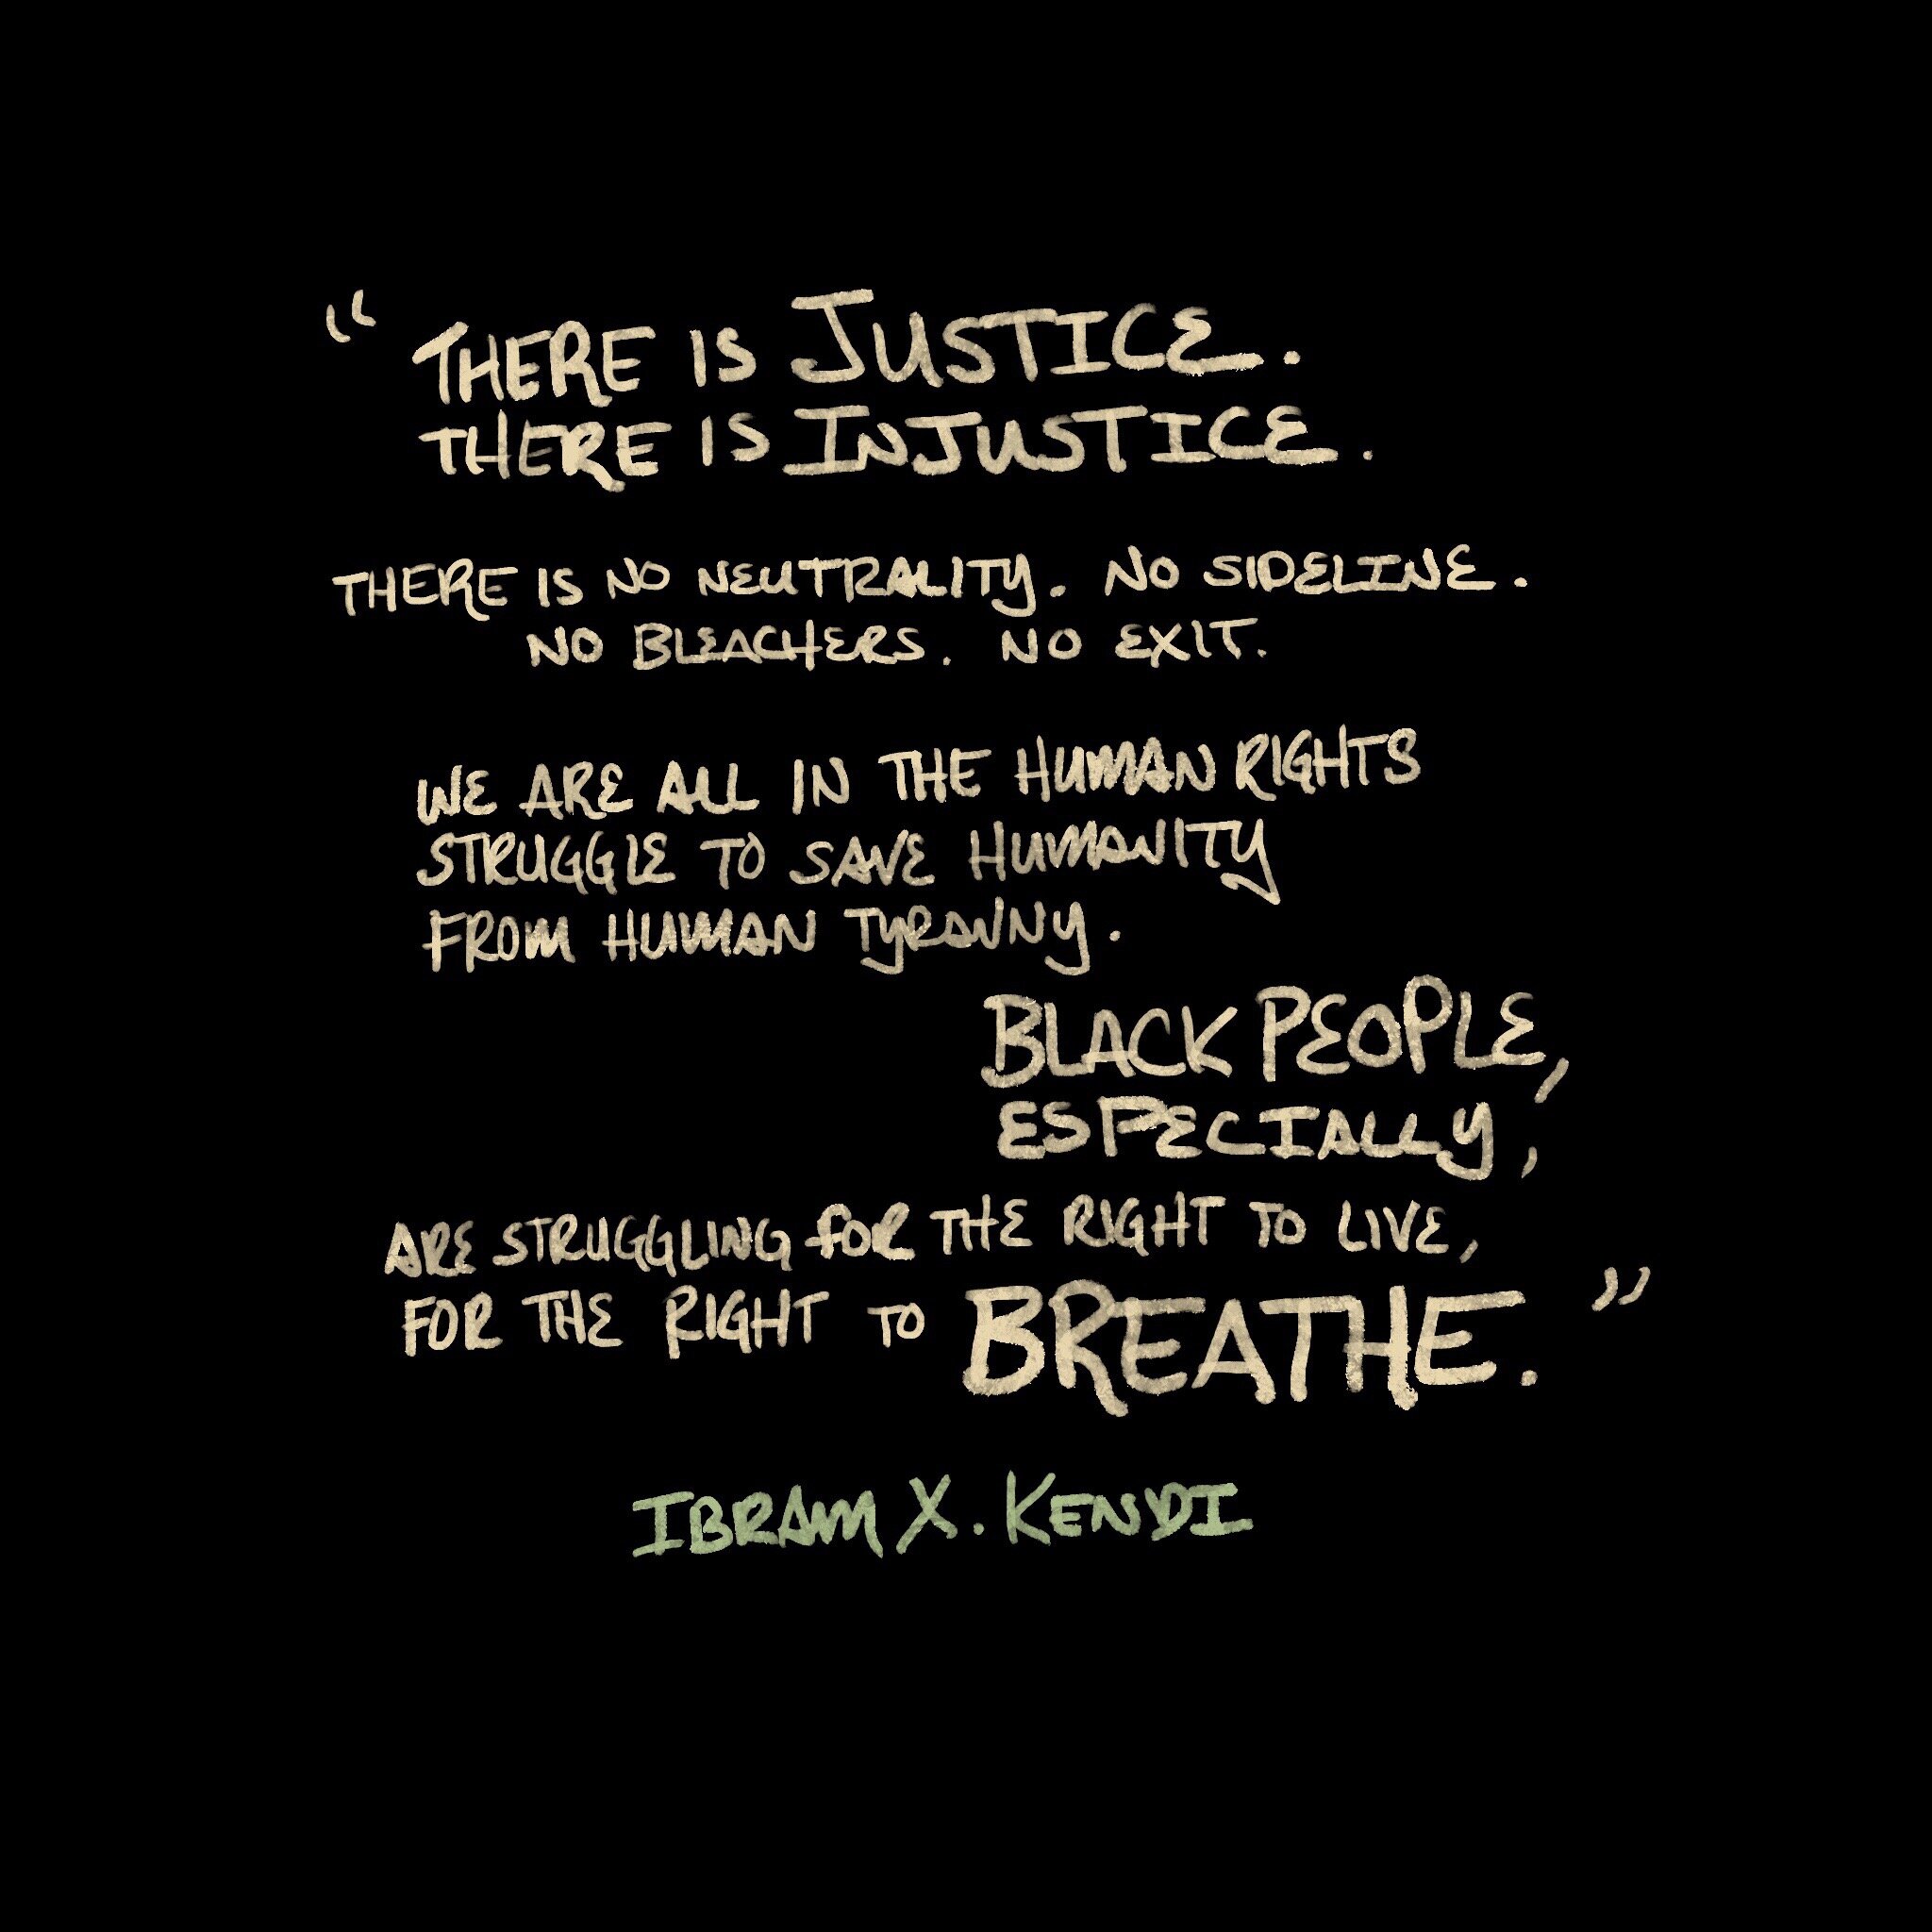 “THERE IS JUSTICE.
THERE IS INJUSTICE.
THERE IS NO NEUTRALITY. NO SIDELINE.
NO BLEACHERS. NO EXIT.
WE ARE ALL IN THE HUMAN RIGHTS
STRUGGLE TO SAVE HUMANITY
FROM HUMAN TYRANNY.
BLACK PEOPLE,
ESPECIALLY,
ARE STRUGGLING FOR THE RIGHT TO LIVE,
FOR THE RIGHT TO BREATHE.”
IBRAM X. KENDI